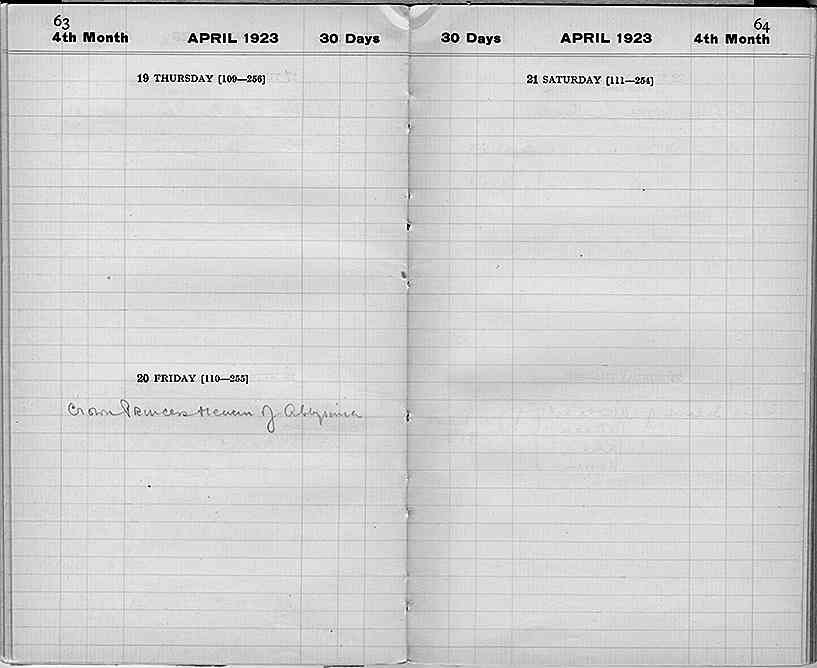 63
4th Month APRIL 1923 30 Days
19 THURSDAY [109—256]
20 FRIDAY [110—255]
Crown Princess Menen of Abbysinia
64
30 Days APRIL 1923 4th Month
21 SATURDAY [111—254]